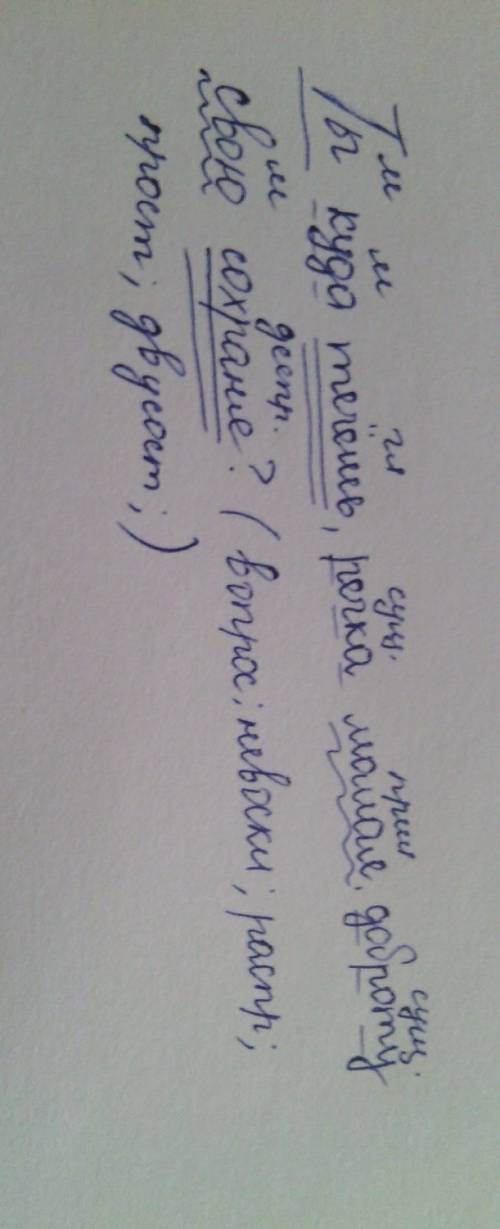 м м гл сущ. прил сущ.
Ты куда течёшь, речка малая, доброту
м деепр.
свою сохране? (вопрос; невоскл; распр;
прост; двусост;)